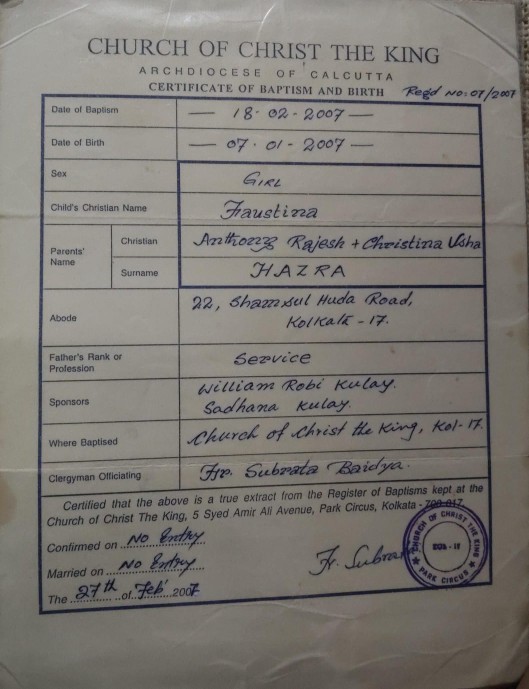 CHURCH OF CHRIST THE KING
ARCHDIOCESE OF CALCUTTA
CERTIFICATE OF BAPTISM AND BIRTH Regd No: 07/2007
Date of Baptism — 18-02-2007 —
Date of Birth — 07-01-2007 —
Sex GIRL
Child's Christian Name Faustina
Parents' Name Christian Anthony Rajesh + Christina Usha
Surname HAZRA
Abode 22, Shamsul Huda Road,
Kolkata - 17.
Father's Rank or Profession Service
Sponsors William Robi Kulay.
Sadhana Kulay.
Where Baptised Church of Christ the King, Kol-17.
Clergyman Officiating Fr. Subrata Baidya.
Certified that the above is a true extract from the Register of Baptisms kept at the
Church of Christ The King, 5 Syed Amir Ali Avenue, Park Circus, Kolkata - 700 017.
Confirmed on No Entry
Married on No Entry
The 27th of Feb' 2007
Fr. Subrata
CHURCH OF CHRIST THE KING
PARK CIRCUS